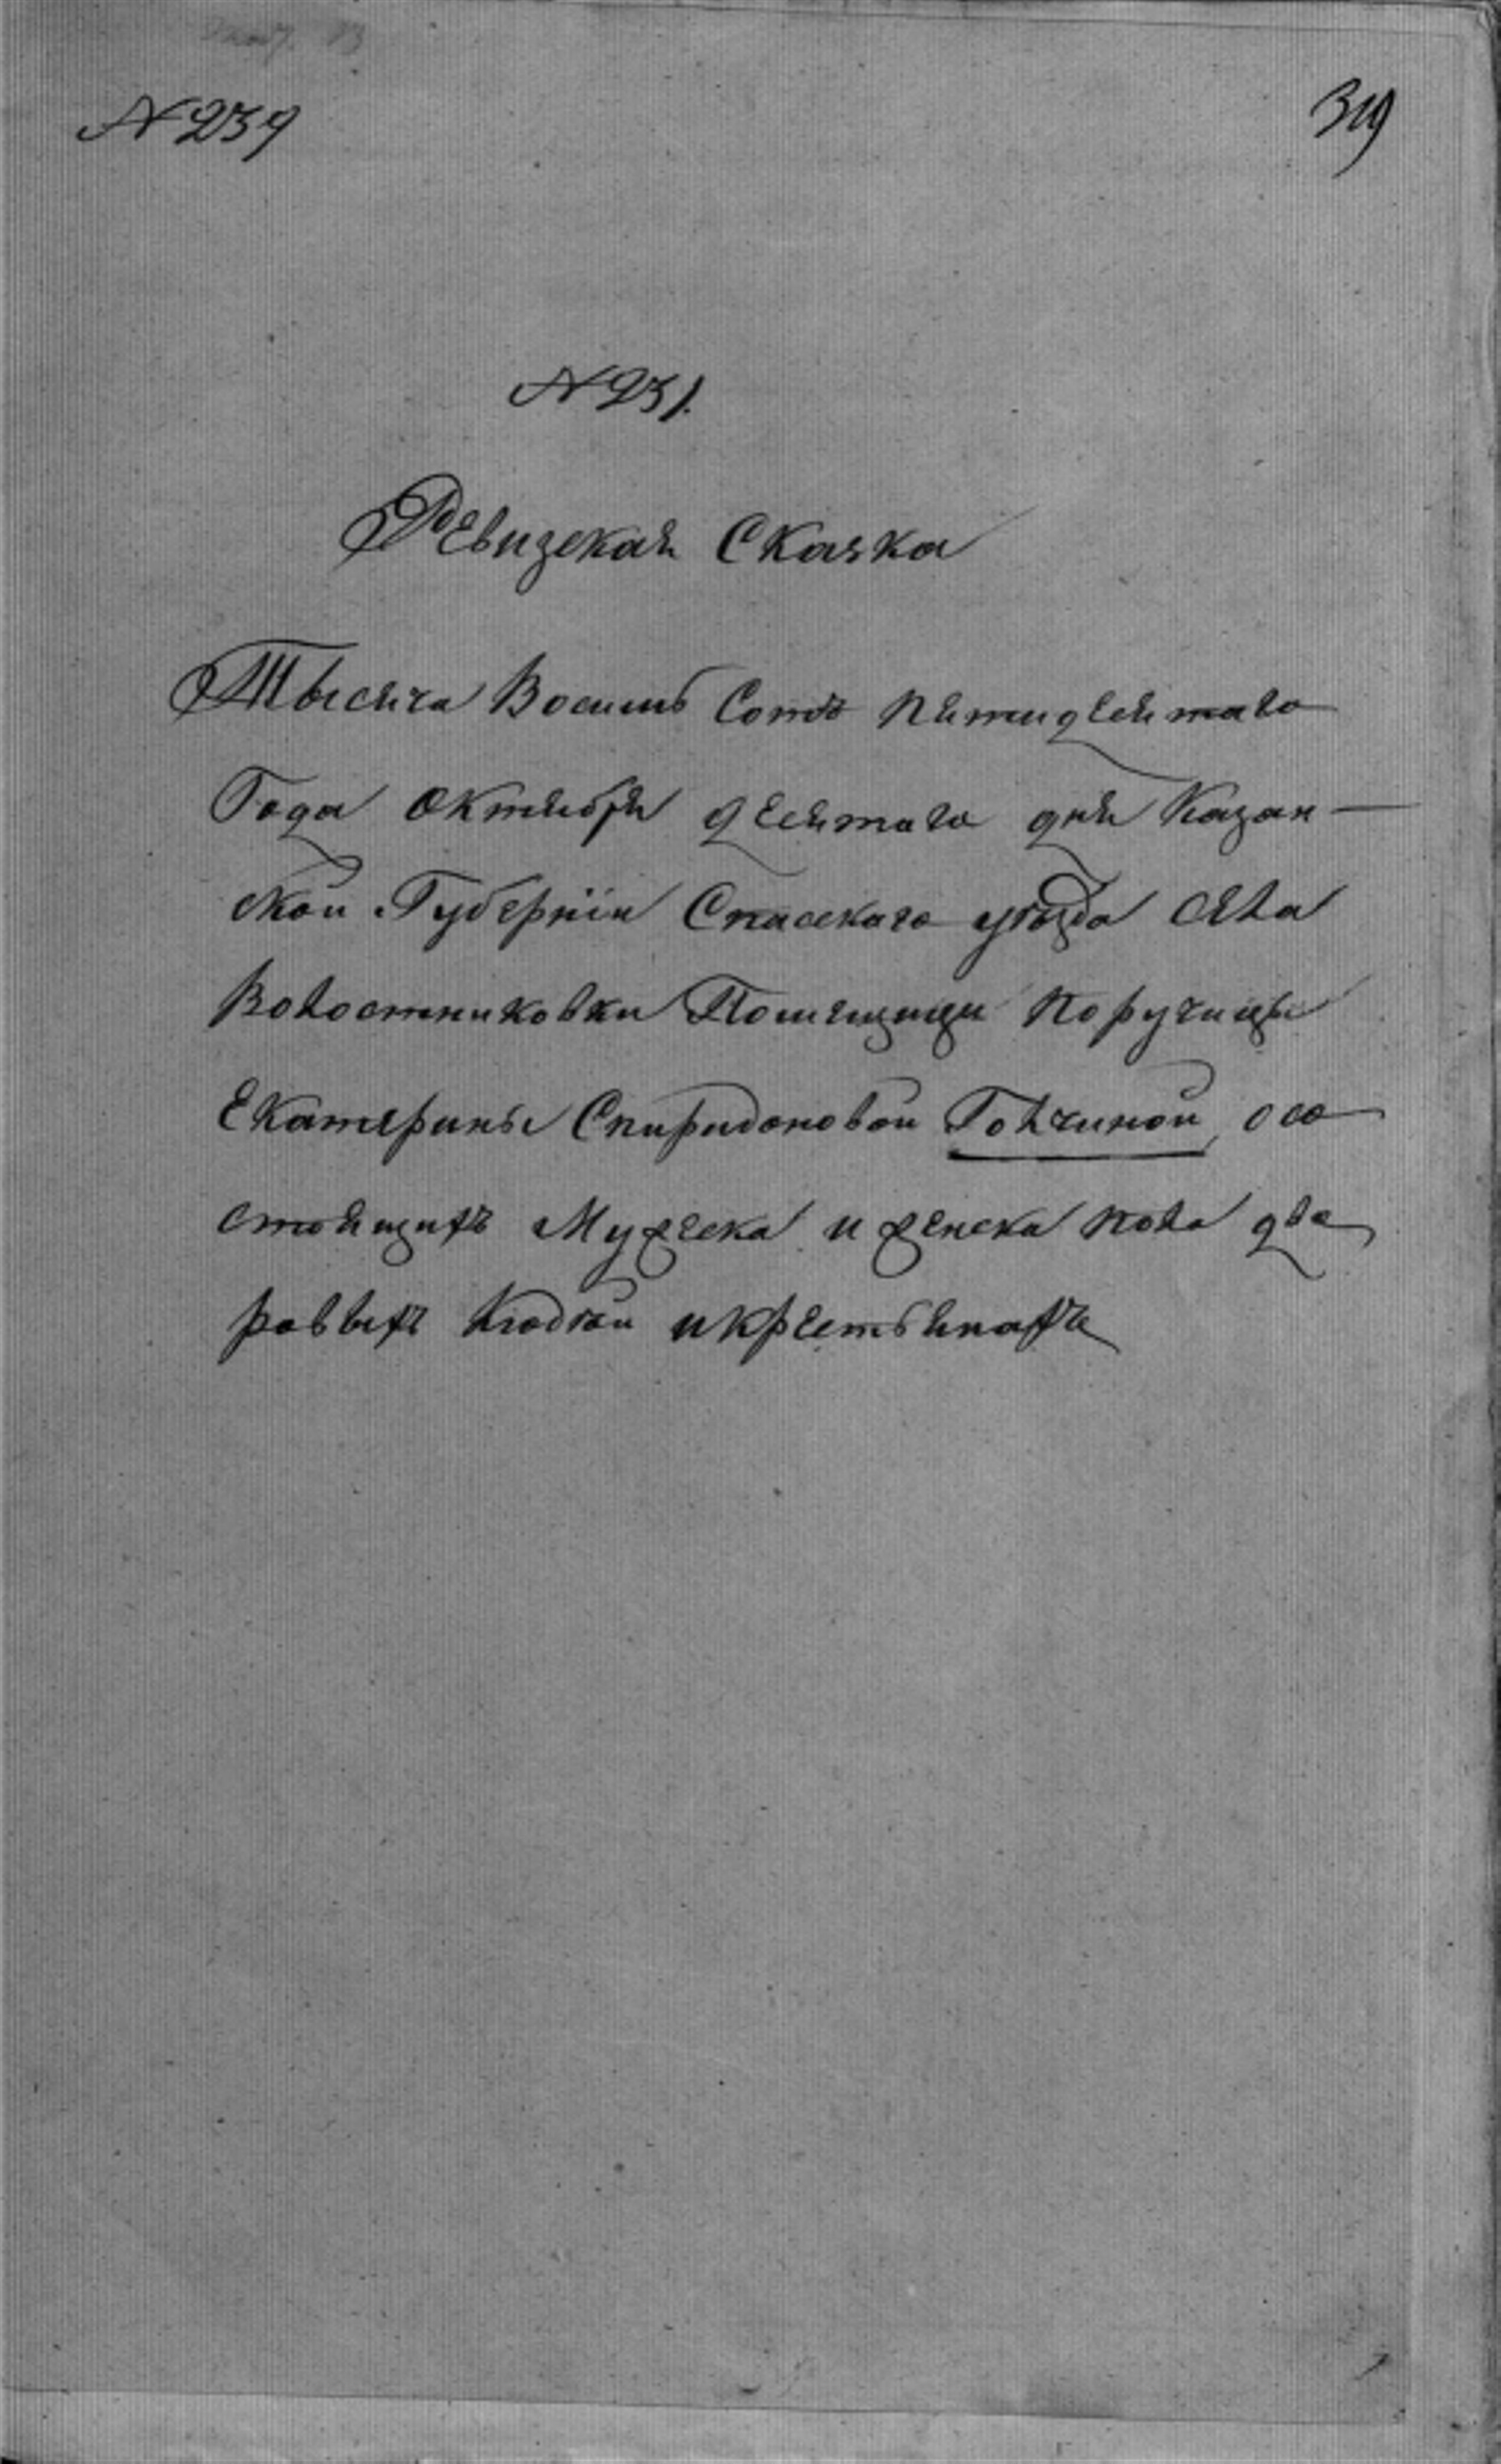 N 239
319
N 231.
Ревизская Сказка
Тысяча Восемь Сотъ пятидесятаго
Года Октября десятаго дня Казан-
ской Губерніи Спасскаго уѣзда села
Волостниковки Помещицы Поручицы
Екатерины Спиридоновой Толчиной, о со
стоящихъ Мужеска и женска пола дво
ровыхъ людей и крестьянахъ